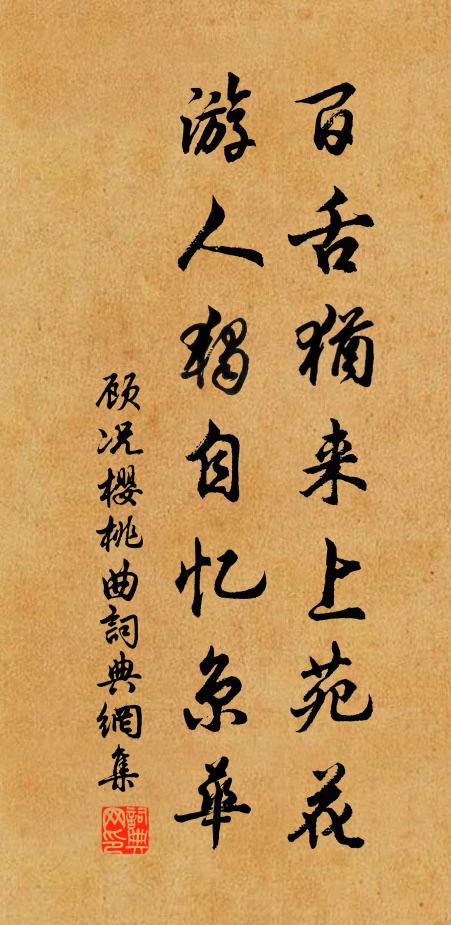 百舌犹来上苑花
游人独自忆京华
顾况樱桃曲詞典網集
詞典网印